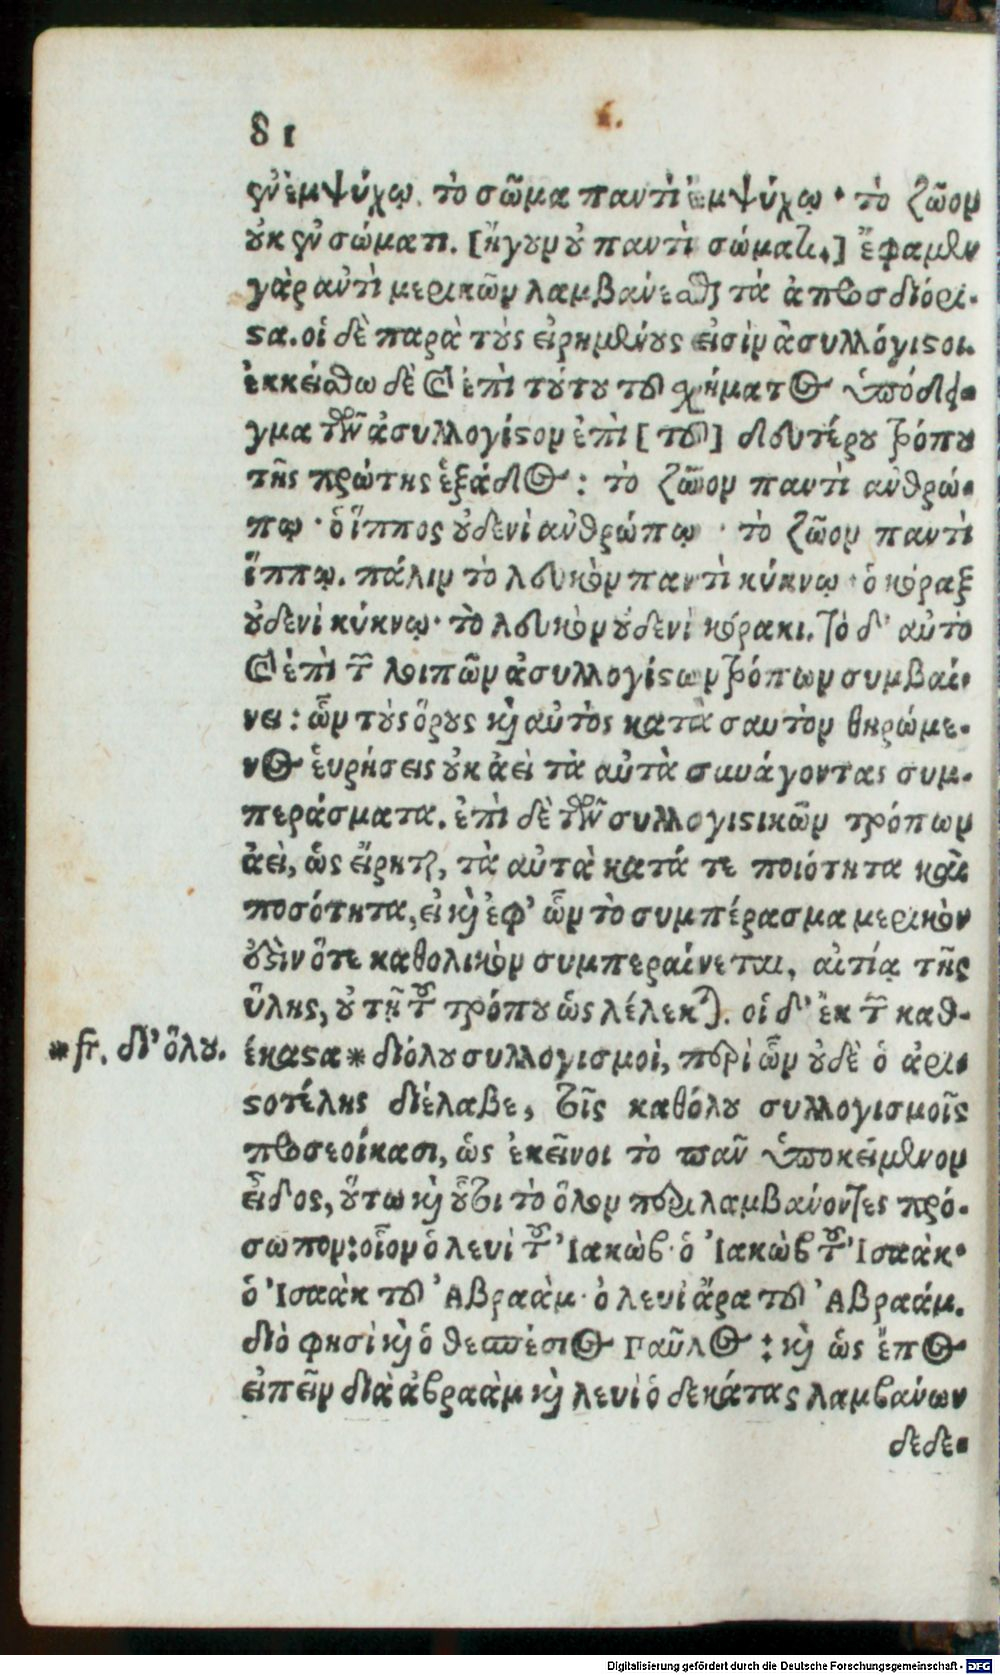 81
ἐν ἐμψύχῳ. τὸ σῶμα παντὶ ἐμψύχῳ· τὸ ζῶον
οὐκ ἐν σώματι. [ἤγουν οὐ παντὶ σώματι,] ἔφαμεν
γὰρ ἀντὶ μερικῶν λαμβάνεσθαι τὰ ἀπροσδιόρι-
στα. οἱ δὲ παρὰ τοὺς εἰρημένους εἰσὶν ἀσυλλόγιστοι.
ἐκκείσθω δὲ καὶ ἐπὶ τούτου τοῦ σχήματος ὑπόδει-
γμα τῶν ἀσυλλογίστων ἐπὶ [τοῦ] δευτέρου τρόπου
τῆς πρώτης ἑξάδος: τὸ ζῶον παντὶ ἀνθρώ-
πῳ· ὁ ἵππος οὐδενὶ ἀνθρώπῳ· τὸ ζῶον παντὶ
ἵππῳ. πάλιν τὸ λευκὸν παντὶ κύκνῳ· ὁ κόραξ
οὐδενὶ κύκνῳ· τὸ λευκὸν οὐδενὶ κόρακι. τὸ δ' αὐτὸ
καὶ ἐπὶ τῶν λοιπῶν ἀσυλλογίστων τρόπων συμβαί-
νει: ὧν τοὺς ὅρους καὶ αὐτὸς κατὰ σαυτὸν θηρώμε-
νος εὑρήσεις οὐκ ἀεὶ τὰ αὐτὰ συνάγοντας συμ-
περάσματα. ἐπὶ δὲ τῶν συλλογιστικῶν τρόπων
ἀεὶ, ὡς εἴρηται, τὰ αὐτὰ κατά τε ποιότητα καὶ
ποσότητα, εἰ καὶ ἐφ' ὧν τὸ συμπέρασμα μερικὸν
ἔστιν ὅτε καθολικὸν συμπεραίνεται, αἰτίᾳ τῆς
ὕλης, οὐ τῇ τοῦ τρόπου ὡς λέλεκται. οἱ δ' ἐκ τῶν καθ-
έκαστα * διόλου συλλογισμοὶ, περὶ ὧν οὐδὲ ὁ ἀρι-
* fr. δι' ὅλου.
στοτέλης διέλαβε, τοῖς καθόλου συλλογισμοῖς
προσεοίκασι, ὡς ἐκεῖνοι τὸ πᾶν ὑποκείμενον
εἶδος, οὕτω καὶ οὗτοι τὸ ὅλον περιλαμβάνοντες πρό-
σωπον: οἷον ὁ λευὶ τοῦ Ἰακὼβ· ὁ Ἰακὼβ τοῦ Ἰσαὰκ·
ὁ Ἰσαὰκ τοῦ Ἀβραὰμ· ὁ λευὶ ἄρα τοῦ Ἀβραάμ.
διὸ φησὶ καὶ ὁ θεσπέσιος Παῦλος: καὶ ὡς ἔπος
εἰπεῖν διὰ ἀβραὰμ καὶ λευὶ ὁ δεκάτας λαμβάνων
δεδε-
Digitalisierung gefördert durch die Deutsche Forschungsgemeinschaft - DFG